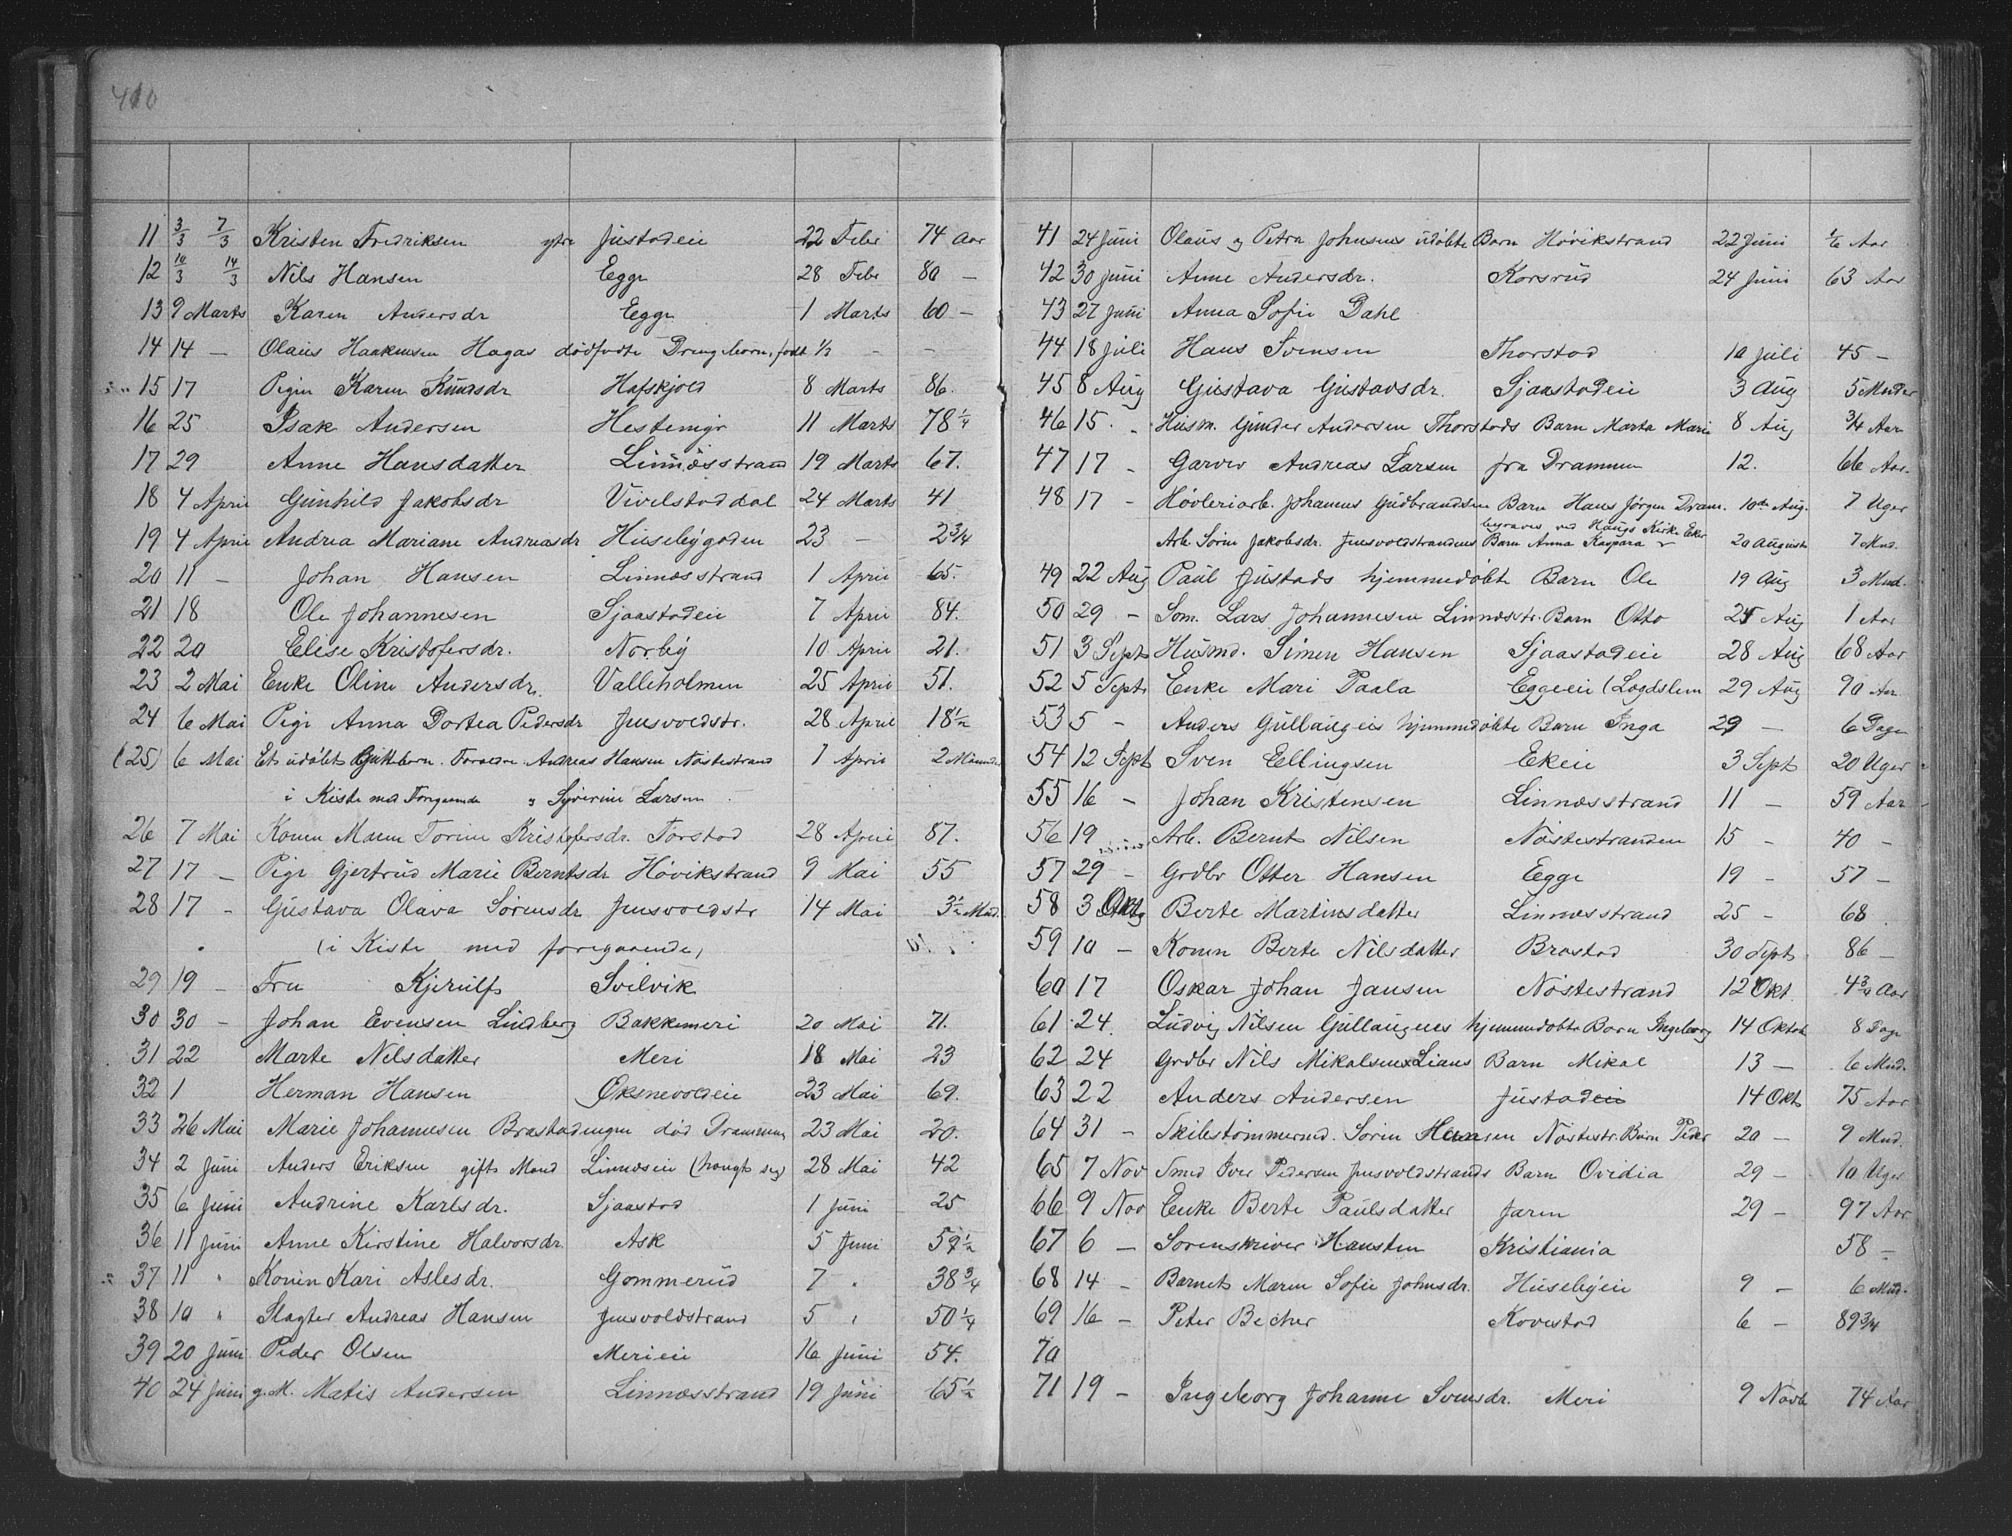 410
11 3/3 7/3 Kristen Fredriksen ytre Justadeie 22 Febr 74 Aar
12 10/3 14/3 Nils Hansen Egge 28 Febr 80 —
13 9 Marts Karen Andersdr Egge 1 Marts 60 —
14 14 — Olaus Haakensen Hagas dødfødte Drengebarn, født 1/3 — —
15 17 Pigen Karen Knudsdr Hafskjold 8 Marts 86.
16 25 Isak Andersen Hestemyr 11 Marts 78 1/4
17 29 Anne Hansdatter Linnæsstrand 19 Marts 67.
18 4 April Gunhild Jakobsdr Vivelstaddal 24 Marts 41
19 4 April Andrea Mariane Andreasdr Husebygaden 23 — 2 3/4
20 11 — Johan Hansen Linnæsstrand 1 April 65.
21 18 Ole Johannesen Sjaastadeie 7 April 84.
22 20 Elise Kristofersdr. Norby 10 April 21.
23 2 Mai Enke Oline Andersdr. Valleholmen 25 April 51.
24 6 Mai Pige Anna Dortea Pedersdr Jensvoldstr. 28 April 18 1/2
(25) 6 Mai Et udøbt Pikebarn. Forældre. Andreas Hansen Nøstestrand 1 April 2 Maaneder
i Kiste med Foregaaende og Syverine Larsen
26 7 Mai Konen Maren Torine Kristofersdr. Torstad 28 April 87.
27 17 — Pige Gjertrud Marie Berntsdr Høvikstrand 9 Mai 55
28 17 - Gustava Olava Sørensdr Jensvoldstr 14 Mai 3 1/2 Mnd.
(i Kiste med foregaaende)
29 19 — Fru Kjerulf Svelvik
30 30 — Johan Evensen Lindberg Bakkemeri 20 Mai 71.
31 22 Marte Nelsdatter Meri 18 Mai 23
32 1 Herman Hansen Øksnevoldeie 23 Mai 69.
33 26 Mai Marie Johannesen Brastadengen død Drammen 23 Mai 20.
34 2 Juni Anders Eriksen gift Mand Linnæseie (hængt seg) 28 Mai 42
35 6 Juni Andrine Karlsdr. Sjaastad 1 Juni 25
36 11 Juni Anne Kirstine Halvorsdr. Ask 5 Juni 59 1/2
37 11 " Konen Kari Aslesdr. Gommerud 7 " 38 3/4
38 10 " Slagter Andreas Hansen Jensvoldstrand 5 " 50 1/4
39 20 Juni Peder Olsen Merieie 16 Juni 54.
40 24 Juni g. M. Matis Andersen Linnæsstrand 19 Juni 65 1/2
41 24 Juni Olaus og Petra Johnsens udøbte Barn Høvikstrand 22 Juni 1/6 Aar
42 30 Juni Anne Andersdr. Korsrud 24 Juni 63 Aar
43 27 Juni Anna Sofie Dahl
44 18 Juli Hans Svensen Thorstad 10 Juli 45 —
45 8 Aug Gustava Gustavsdr. Sjaastadeie 3 Aug 5 Mnder
46 15. - Husm. Gunder Andersen Thorstads Barn Marta Marie 8 Aug 3/4 Aar
47 17 - Garver Andreas Larsen fra Drammen 12. 66 Aar.
48 17 - Høvleriarb. Johannes Gudbrandsen Barn Hans Jørgen Dram. 10de Aug. 7 Uger
begraves ved Haugs Kirke Eker
Arb. Søren Jakobsdr. Jensvoldstrandens Barn Anna Kaspara 20 August 7 Mnd.
49 22 Aug Paul Justads hjemmedøbte Barn Ole 19 Aug 3 Mnd.
50 29 - Søm. Lars Johannesen Linnæsstr. Barn Otto 25 Aug 1 Aar
51 3 Sept Husmd. Simen Hansen Sjaastadeie 28 Aug 68 Aar
52 5 Sept. Enke Mari Paala Eggeeie (Lægdslem 29 Aug 90 Aar
53 5 - Anders Gullaugeies hjemmedøbte Barn Inga 29 — 6 Dage
54 12 Sept Sven Ellingsen Ekeie 3 Sept 20 Uger
55 16 - Johan Kristensen Linnæsstrand 11 — 59 Aar
56 19 Arb. Bernt Nilsen Nøstestranden 15 - 40 -
57 29 - Grdbr Otter Hansen Egge 19 - 57 —
58 3 Okt Berte Martinsdatter Linnæsstrand 25 - 68
59 10 — Konen Berte Nilsdatter Brastad 30 Sept 86 —
60 17 Oskar Johan Jansen Nøstestrand 12 Okt. 4 3/4 Aar
61 24. Ludvig Nilsen Gullaugenes hjemmedøbte Barn Ingeborg 14 Oktob 8 Dage
62 24 Grdbr Nils Mikalsens Lians Barn Mikal 13 — 6 Mnd.
63 22 Anders Andersen Justadeie 14 Okt 75 Aar
64 31 — Skibstømmermd. Soren Hansen Nøstestr. Barn Peder 20 — 9 Mnd.
65 7 Nov Smed Iver Pedersen Jensvoldstrands Barn Ovidia 29 — 10 Uger
66 9 Nov Enke Berte Paulsdatter Jaren 29 — 97 Aar
67 6 — Sorenskriver Hansten Kristiania 58 —
68 14 - Barnet Maren Sofie Johnsdr. Husebyeie 9 - 6 Mnd.
69 16 — Peter Becher Kovestad 6 — 89 3/4
70
71 19 - Ingeborg Johanne Svensdr. Meri 9 Novb 74 Aar